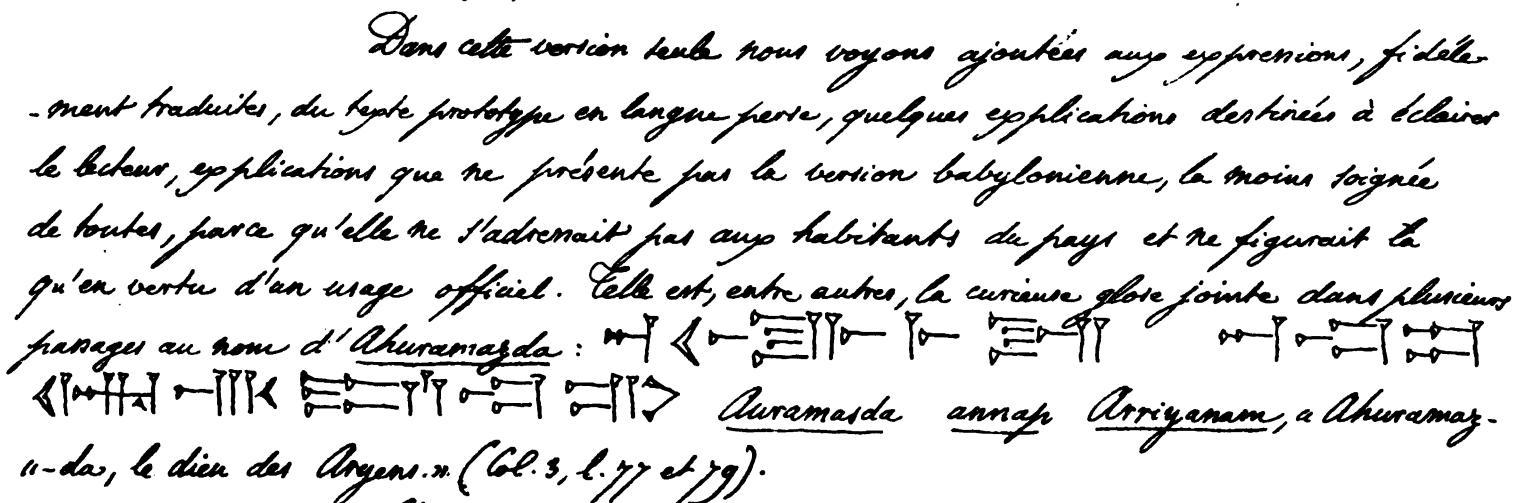 Dans cette version seule nous voyons ajoutées aux expressions, fidéle-
-ment traduites, du texte prototype en langue perse, quelques explications destinées à éclairer
le lecteur, explications que ne présente pas la version babylonienne, la moins soignée
de toutes, parce qu'elle ne s'adressait pas aux habitants du pays et ne figurait là
qu'en vertu d'un usage officiel. Telle est, entre autres, la curieuse glose jointe dans plusieurs
passages au nom d'Ahuramazda :
Auramasda annap Arriyanam, « Ahuramaz-
"-da, le dieu des Aryens.» (Col. 3, l. 77 et 79).